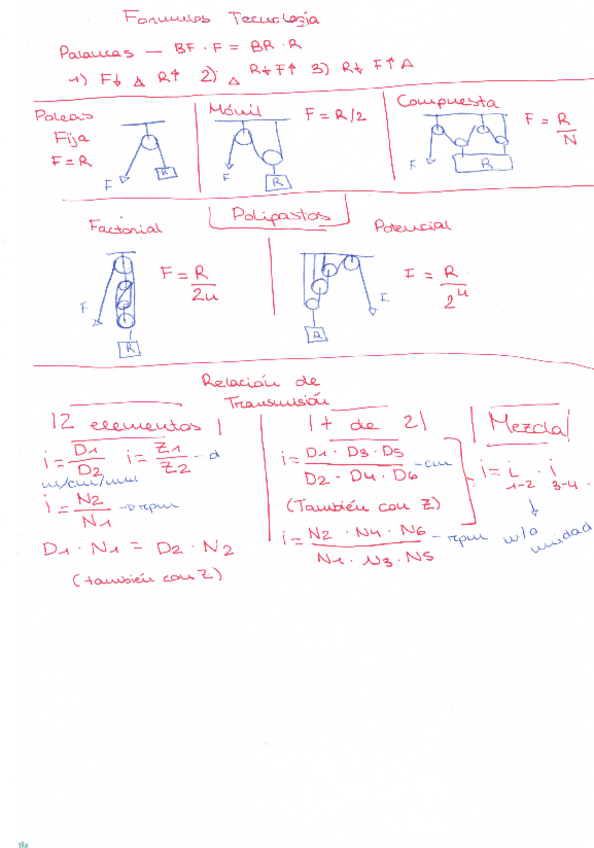 Formulas Tecnología
Palancas — BF · F = BR · R
1) F↓ △ R↑ 2) △ R↓ F↑ 3) R↓ F↑ △
Poleas
Fija
F = R
F
R
Móvil
F = R/2
F
R
Compuesta
F = R/N
F
R
Polipastos
Factorial
F = R/2n
F
R
Potencial
I = R/2ⁿ
I
R
Relación de
Transmisión
2 elementos
i = D1/D2 i = Z1/Z2 – d
m/cm/mm
i = N2/N1 → rpm
D1 · N1 = D2 · N2
(también con Z)
+ de 2
i = D1 · D3 · D5 / D2 · D4 · D6 – cm
(También con Z)
i = N2 · N4 · N6 / N1 · N3 · N5 – rpm
Mezcla
i = i 1-2 · i 3-4 .
unidad